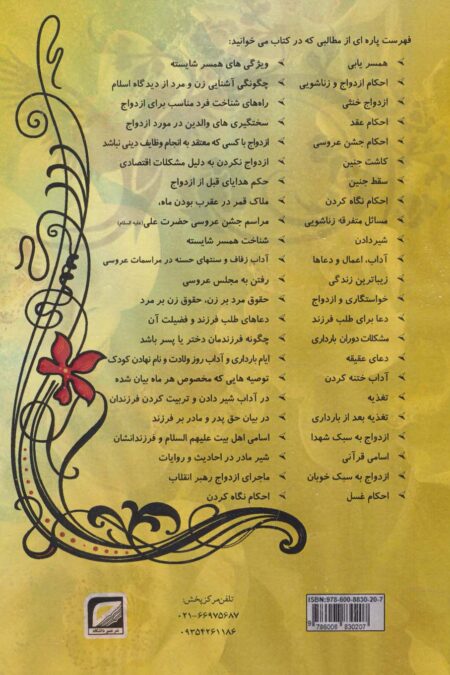 فهرست پاره ای از مطالبی که در کتاب می خوانید:
همسر یابی
احکام ازدواج و زناشویی
ازدواج خنثی
احکام عقد
احکام جشن عروسی
کاشت جنین
سقط جنین
احکام نگاه کردن
مسائل متفرقه زناشویی
شیردادن
آداب، اعمال و دعاها
زیباترین زندگی
خواستگاری و ازدواج
دعا برای طلب فرزند
مشکلات دوران بارداری
دعای عقیقه
آداب ختنه کردن
تغذیه
تغذیه بعد از بارداری
ازدواج به سبک شهدا
اسامی قرآنی
ازدواج به سبک خوبان
احکام غسل
ویژگی های همسر شایسته
چگونگی آشنایی زن و مرد از دیدگاه اسلام
راه‌های شناخت فرد مناسب برای ازدواج
سختگیری های والدین در مورد ازدواج
ازدواج با کسی که معتقد به انجام وظایف دینی نباشد
ازدواج نکردن به دلیل مشکلات اقتصادی
حکم هدایای قبل از ازدواج
ملاک قمر در عقرب بودن ماه،
مراسم جشن عروسی حضرت علی (علیه السلام)
شناخت همسر شایسته
آداب زفاف و سنتهای حسنه در مراسمات عروسی
رفتن به مجلس عروسی
حقوق مرد بر زن، حقوق زن بر مرد
دعاهای طلب فرزند و فضیلت آن
چگونه فرزندمان دختر یا پسر باشد
ایام بارداری و آداب روز ولادت و نام نهادن کودک
توصیه هایی که مخصوص هر ماه بیان شده
در آداب شیر دادن و تربیت کردن فرزندان
در بیان حق پدر و مادر بر فرزند
اسامی اهل بیت علیهم السلام و فرزندانشان
شیر مادر در احادیث و روایات
ماجرای ازدواج رهبر انقلاب
احکام نگاه کردن
تلفن مرکز پخش:
۰۲۱-۶۶۹۷۵۶۸۷
۰۹۳۵۴۲۶۱۱۸۶
ISBN: 978-600-8830-20-7
9 786008 830207